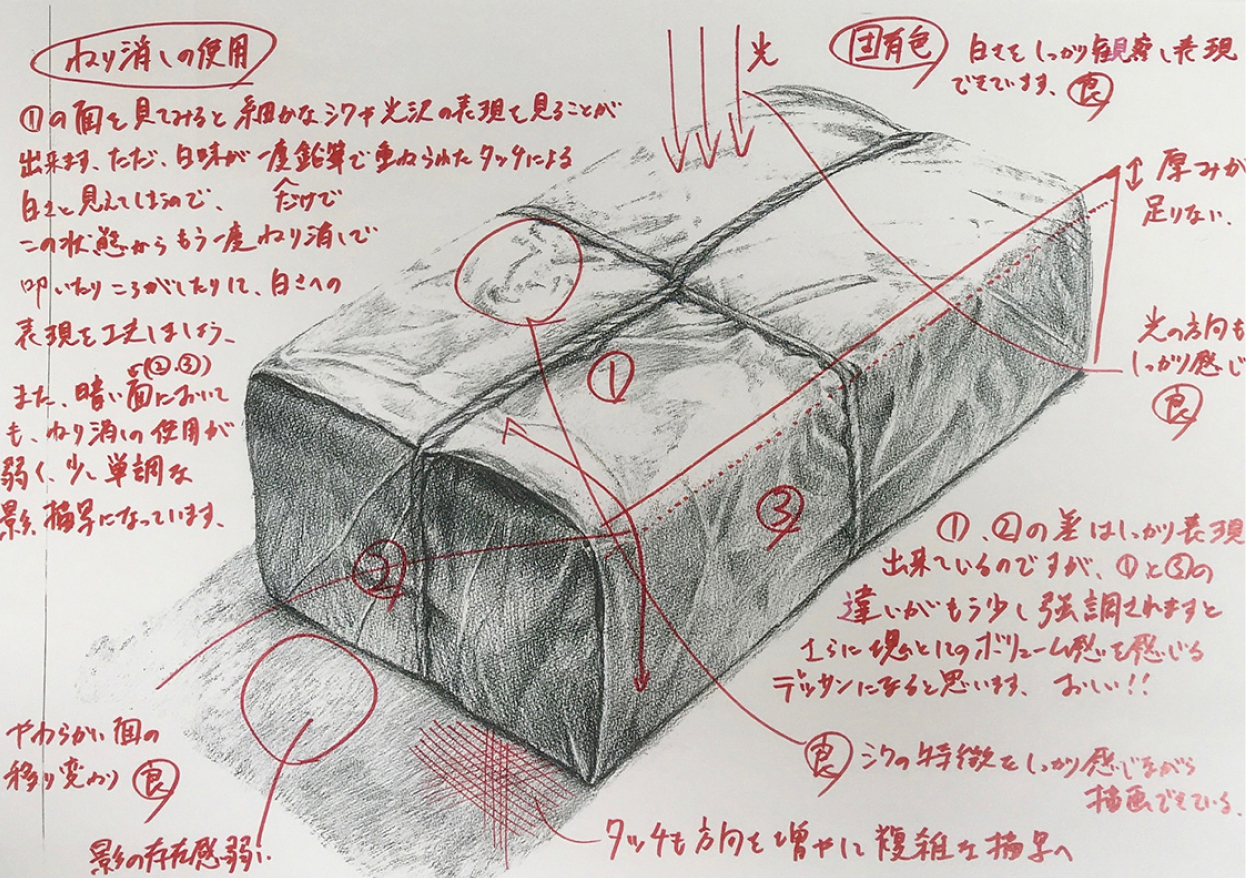 ねり消しの使用
①の面を見てみると細かなシワや光沢の表現を見ることが
出来ます、ただ、白味が一度鉛筆で重ねられたタッチによる
白さと見えてしまうので、だけで
この状態からもう一度ねり消しで
叩いたりころがしたりして、白さへの
表現を工夫しましょう、
(②、③)
また、暗い面において
も、ねり消しの使用が
弱く、少し単調な
影、描写になっています、
光
固有色
白さをしっかり観察し表現
できています、良
厚みが
足りない、
光の方向も
しっかり感じ
良
①
②
③
①、②の差はしっかり表現
出来ているのですが、①と③の
違いがもう少し強調されますと
さらに塊としてのボリューム感を感じる
デッサンになると思います、おしい!!
良 シワの特徴をしっかり感じながら
描画できている、
やわらかい面の
移り変わり 良
影の存在感弱い
タッチも方向を増やして複雑な描写へ